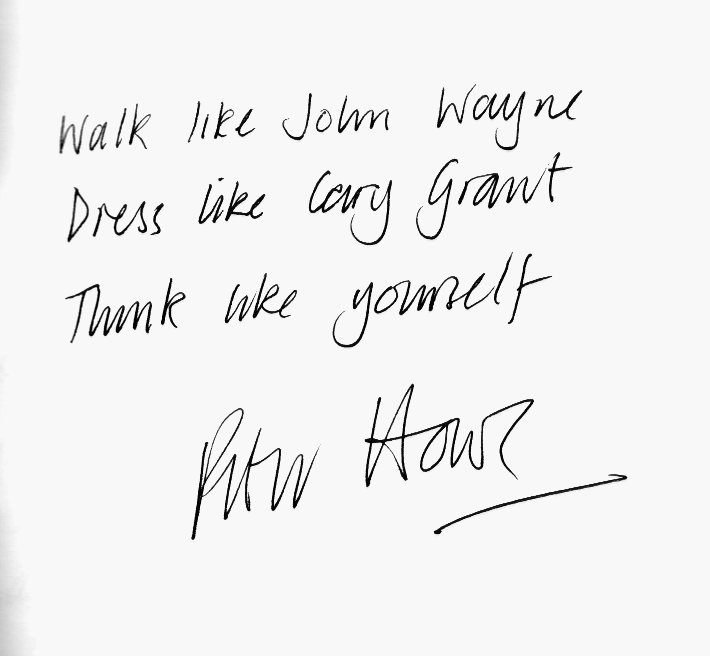 Walk like John Wayne
Dress like Cary Grant
Think like yourself
Peter Howe